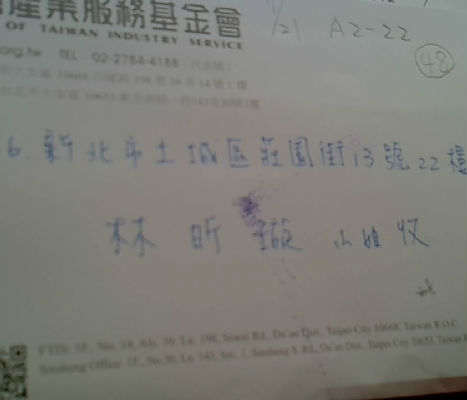 產業服務基金會
OF TAIWAN INDUSTRY SERVICE
1/21 A2-22
48
org.tw TEL：02-2784-4188
6. 新北市土城區莊園街13號22樓
林昕璇 小姐 收
FTIS: 1F., No. 14, Aly. 39, Ln. 198, Siwei Rd., Da'an Dist., Taipei City 10668, Taiwan R.O.C.
Office: 1F., No.30, Ln. 143, Sec. 1, Sinsheng S. Rd., Da'an Dist., Taipei City 10653, Taiwan